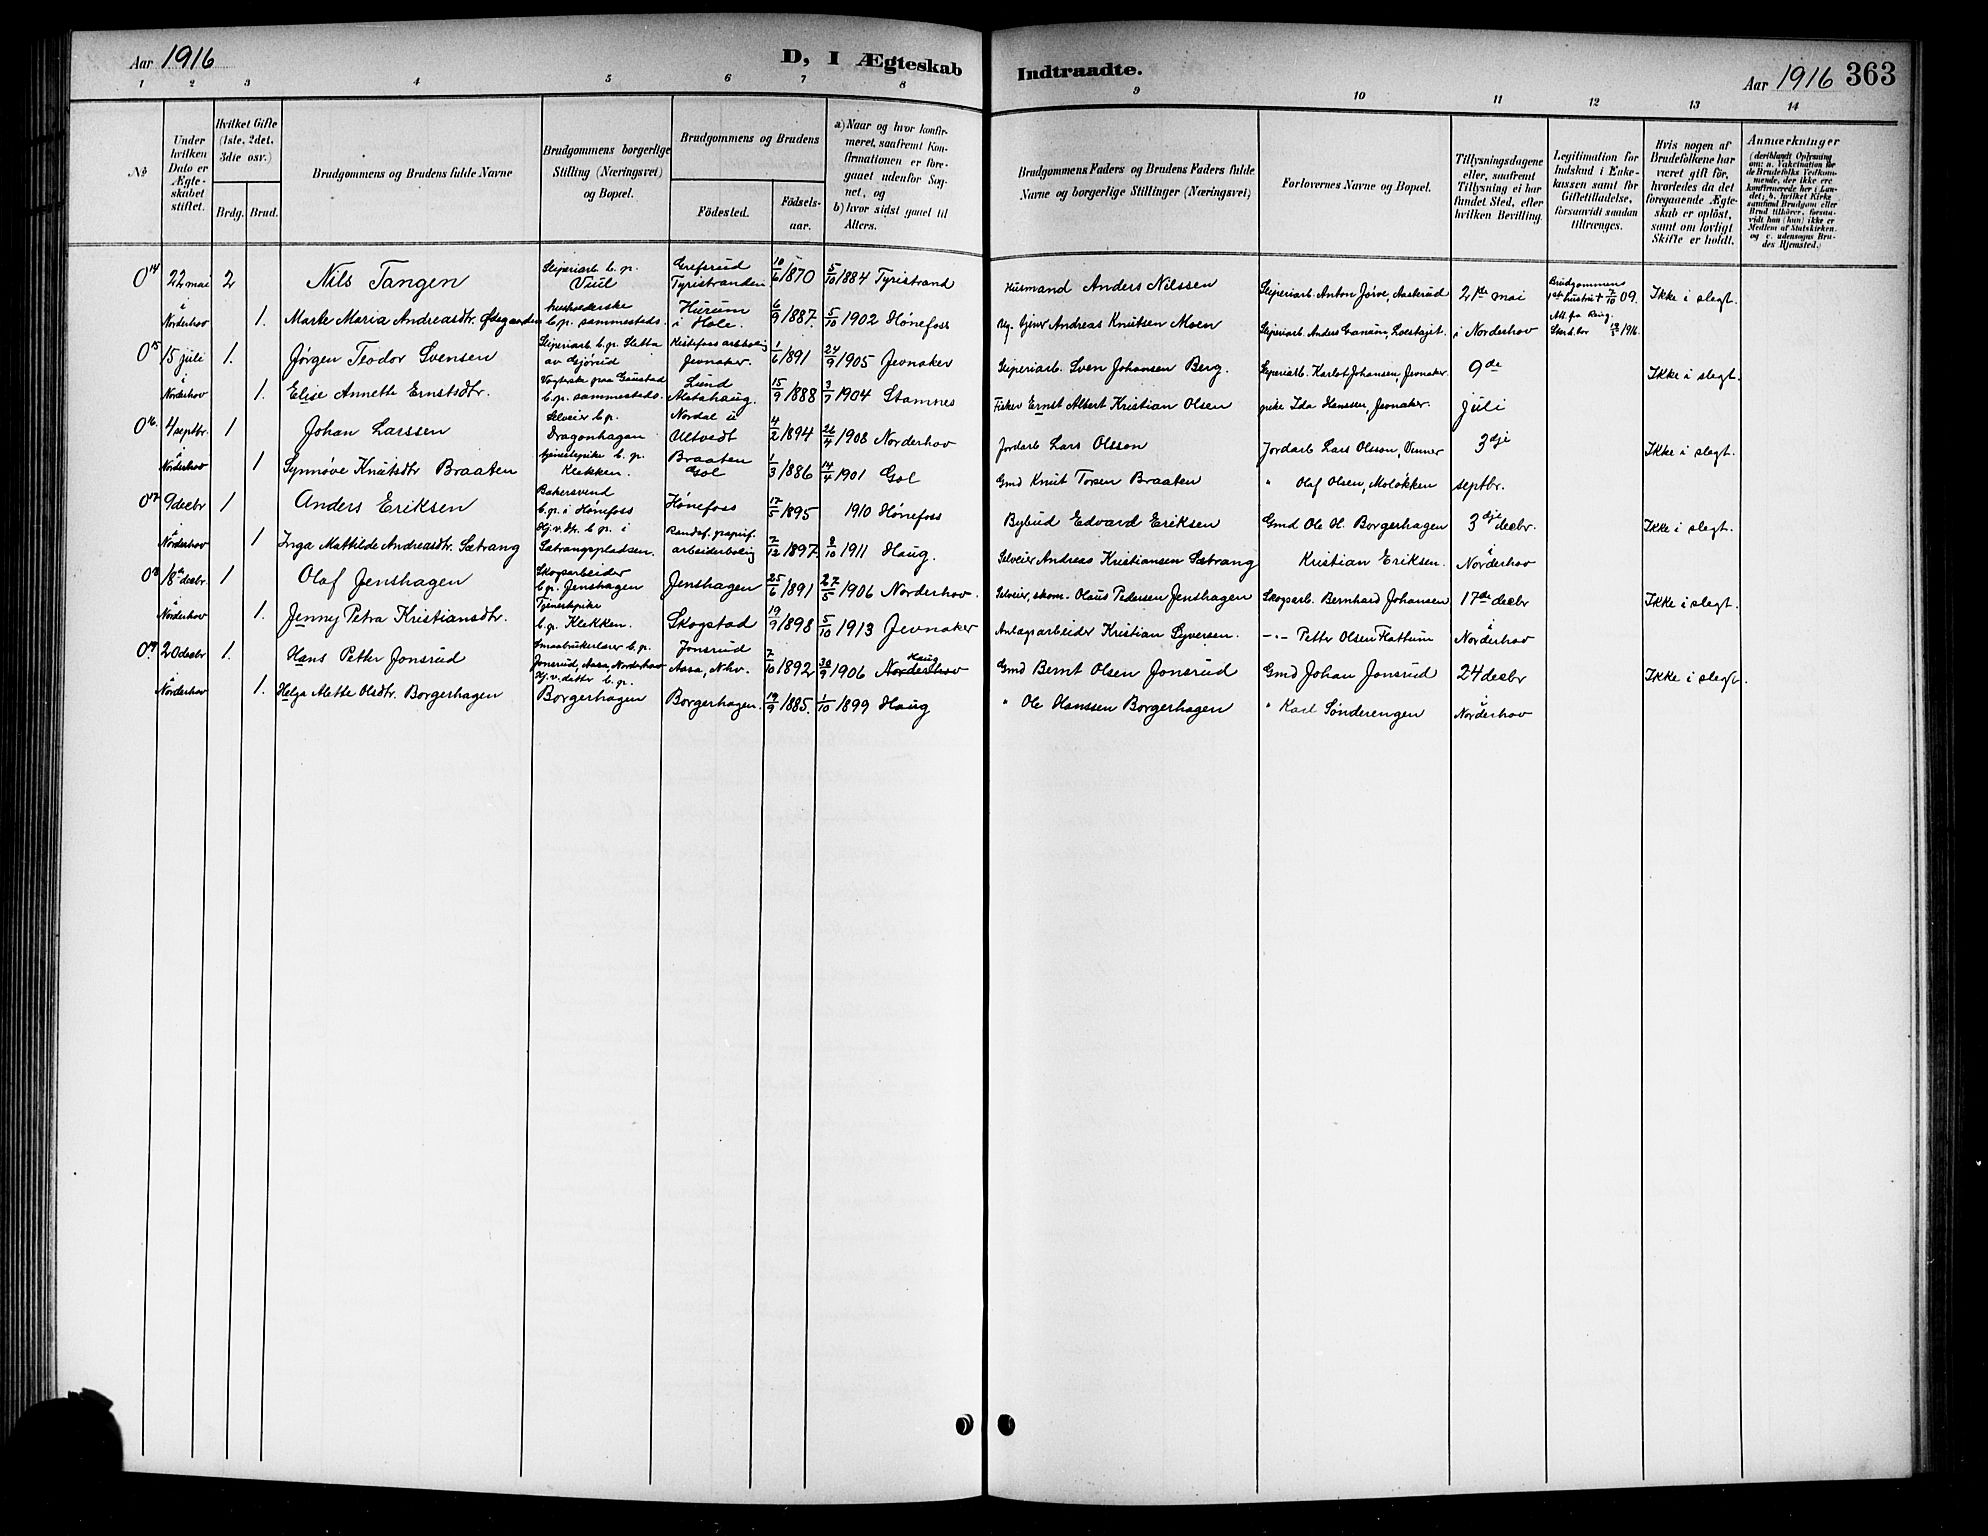 Aar 1916
D, I Ægteskab
Indtraadte.
Aar 1916 363
1 2 3 4 5 6 7 8 9 10 11 12 13 14
No
Under hvilken Dato er Ægteskabet stiftet.
Hvilket Gifte (1ste, 2det, 3die osv.)
Brdg. Brud.
Brudgommens og Brudens fulde Navne
Brudgommens borgerlige Stilling (Næringsvei) og Bopæl.
Brudgommens og Brudens
Födested.
Födsels-aar.
a) Naar og hvor konfirmeret, saafremt Konfirmationen er foregaaet udenfor Sognet, og
b) hvor sidst gaaet til Alters.
Brudgommens Faders og Brudens Faders fulde Navne og borgerlige Stillinger (Næringsvei)
Forlovernes Navne og Bopæl.
Tillysningsdagene eller, saafremt Tillysning ei har fundet Sted, efter hvilken Bevilling.
Legitimation for Indskud i Enkekassen samt for Giftetilladelse, forsaavidt saadan tiltrænges.
Hvis nogen af Brudefolkene har været gift för, hvorledes da det foregaaende Ægteskab er oplöst, samt om lovligt Skifte er holdt.
Anmærkninger
14 22 mai 2 Nils Tangen Sliperiarb. b.p. Viul Grefsrud Tyristranden 10/6 1870 5/10 1884 Tyristrand Husmand Anders Nilssen Sliperiarb. Anton Jørve, Aaskerud 21de mai Brudgommens 1ste hustru + 7/10 09. Ikke i slegt.
i Norderhov 1. Marte Maria Andreasdtr. Ødegaarden b.p. sammesteds. Hurum i Hole. 6/9 1887. 5/10 1902 Hønefoss Andreas Knutsen Moen Sliperiarb. Anders i Norderhov Att. fra Ring. 1916.
15 15 juli 1. Jørgen Teodor Svensen Sliperiarb. b.p. Sletta av Gjørud Jevnaker. 1/6 1891 24/9 1905 Jevnaker Sliperiarb. Sven Johansen Berg. Sliperiarb. Karlot Johansen, Jevnaker. 9de Ikke i slegt.
i Norderhov 1. Elise Annette Ernstsdtr. b.p. sammesteds. Lund Alstahaug. 15/9 1888 3/9 1904 Stamnes Fisker Ernst Albert Kristian Olsen pike Ida Hanssen, Jevnaker. juli
16. 4 septbr. 1 Johan Larssen Selveier b.p. Dragonhagan Nordal u Ultvedt 4/2 1894 26/4 1908 Norderhov Jordarb Lars Olsson Jordarb Lars Olsson, Venner 3dje Ikke i slegt.
i Norderhov 1 Synnøve Knutsdtr Braaten tjenestepike b.p. Klekken. Braaten Gol 1/3 1886 14/4 1901 Gol Gmd Knut Torsen Braaten " Olaf Olsen, Moløkken septbr.
17 9 decbr 1 Anders Eriksen Bakersvend b.p. i Hønefoss Hønefoss 17/5 1895 1910 Hønefoss Bybud Edvard Eriksen Gmd Ole H. Borgerhagen 3dje decbr. Ikke i slegt.
i Norderhov 1 Inga Mathilde Andreasdtr. Sætrang Hj.v.dtr. b.p. i Sætrangspladsen. arbeiderbolig 7/12 1897. 8/10 1911 Haug. Selveier Andreas Kristiansen Sætrang Kristian Eriksen. i Norderhov
18 18de decbr. 1 Olaf Jenshagen Skogsarbeider b.p. Jenshagen Jenshagen 25/6 1891 27/5 1906 Norderhov. Selveier, skom. Olaus Pedersen Jenshagen Skogsarb. Bernhard Johansen 17de decbr Ikke i slegt.
i Norderhov 1. Jenny Petra Kristiansdtr. Tjenestepike b.p. Klekken. Skogstad 19/9 1898 5/10 1913 Jevnaker Anlægsarbeider Kristian Syversen. -"- Petter Olsen Flattum i Norderhov
19. 20 decbr 1. Hans Petter Jonsrud Smaabrukerlærer b.p. Jonsrud, Aasa, Norderhov Jonsrud Aasa, N.hv. 7/10 1892 30/9 1906 Norderhov Haug Gmd Bernt Olsen Jonsrud Gmd Johan Jonsrud 24 decbr Ikke i slegt.
i Norderhov 1. Helga Alette Olsdtr. Borgerhagen Hj.v. datter b.p. Borgerhagen Borgerhagen. 19/9 1885. 1/10 1899 Haug " Ole Hanssen Borgerhagen " Karl Sønderengen i Norderhov